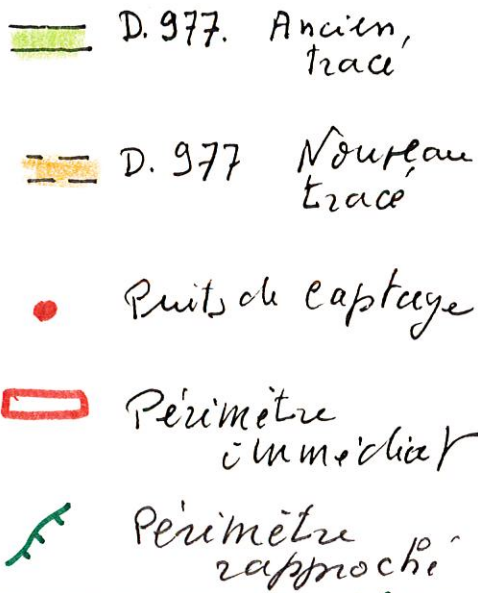 D. 977. Ancien,
tracé
D. 977 Nouveau
tracé
Puits de Captage
Périmètre
immédiat
Périmètre
rapproché